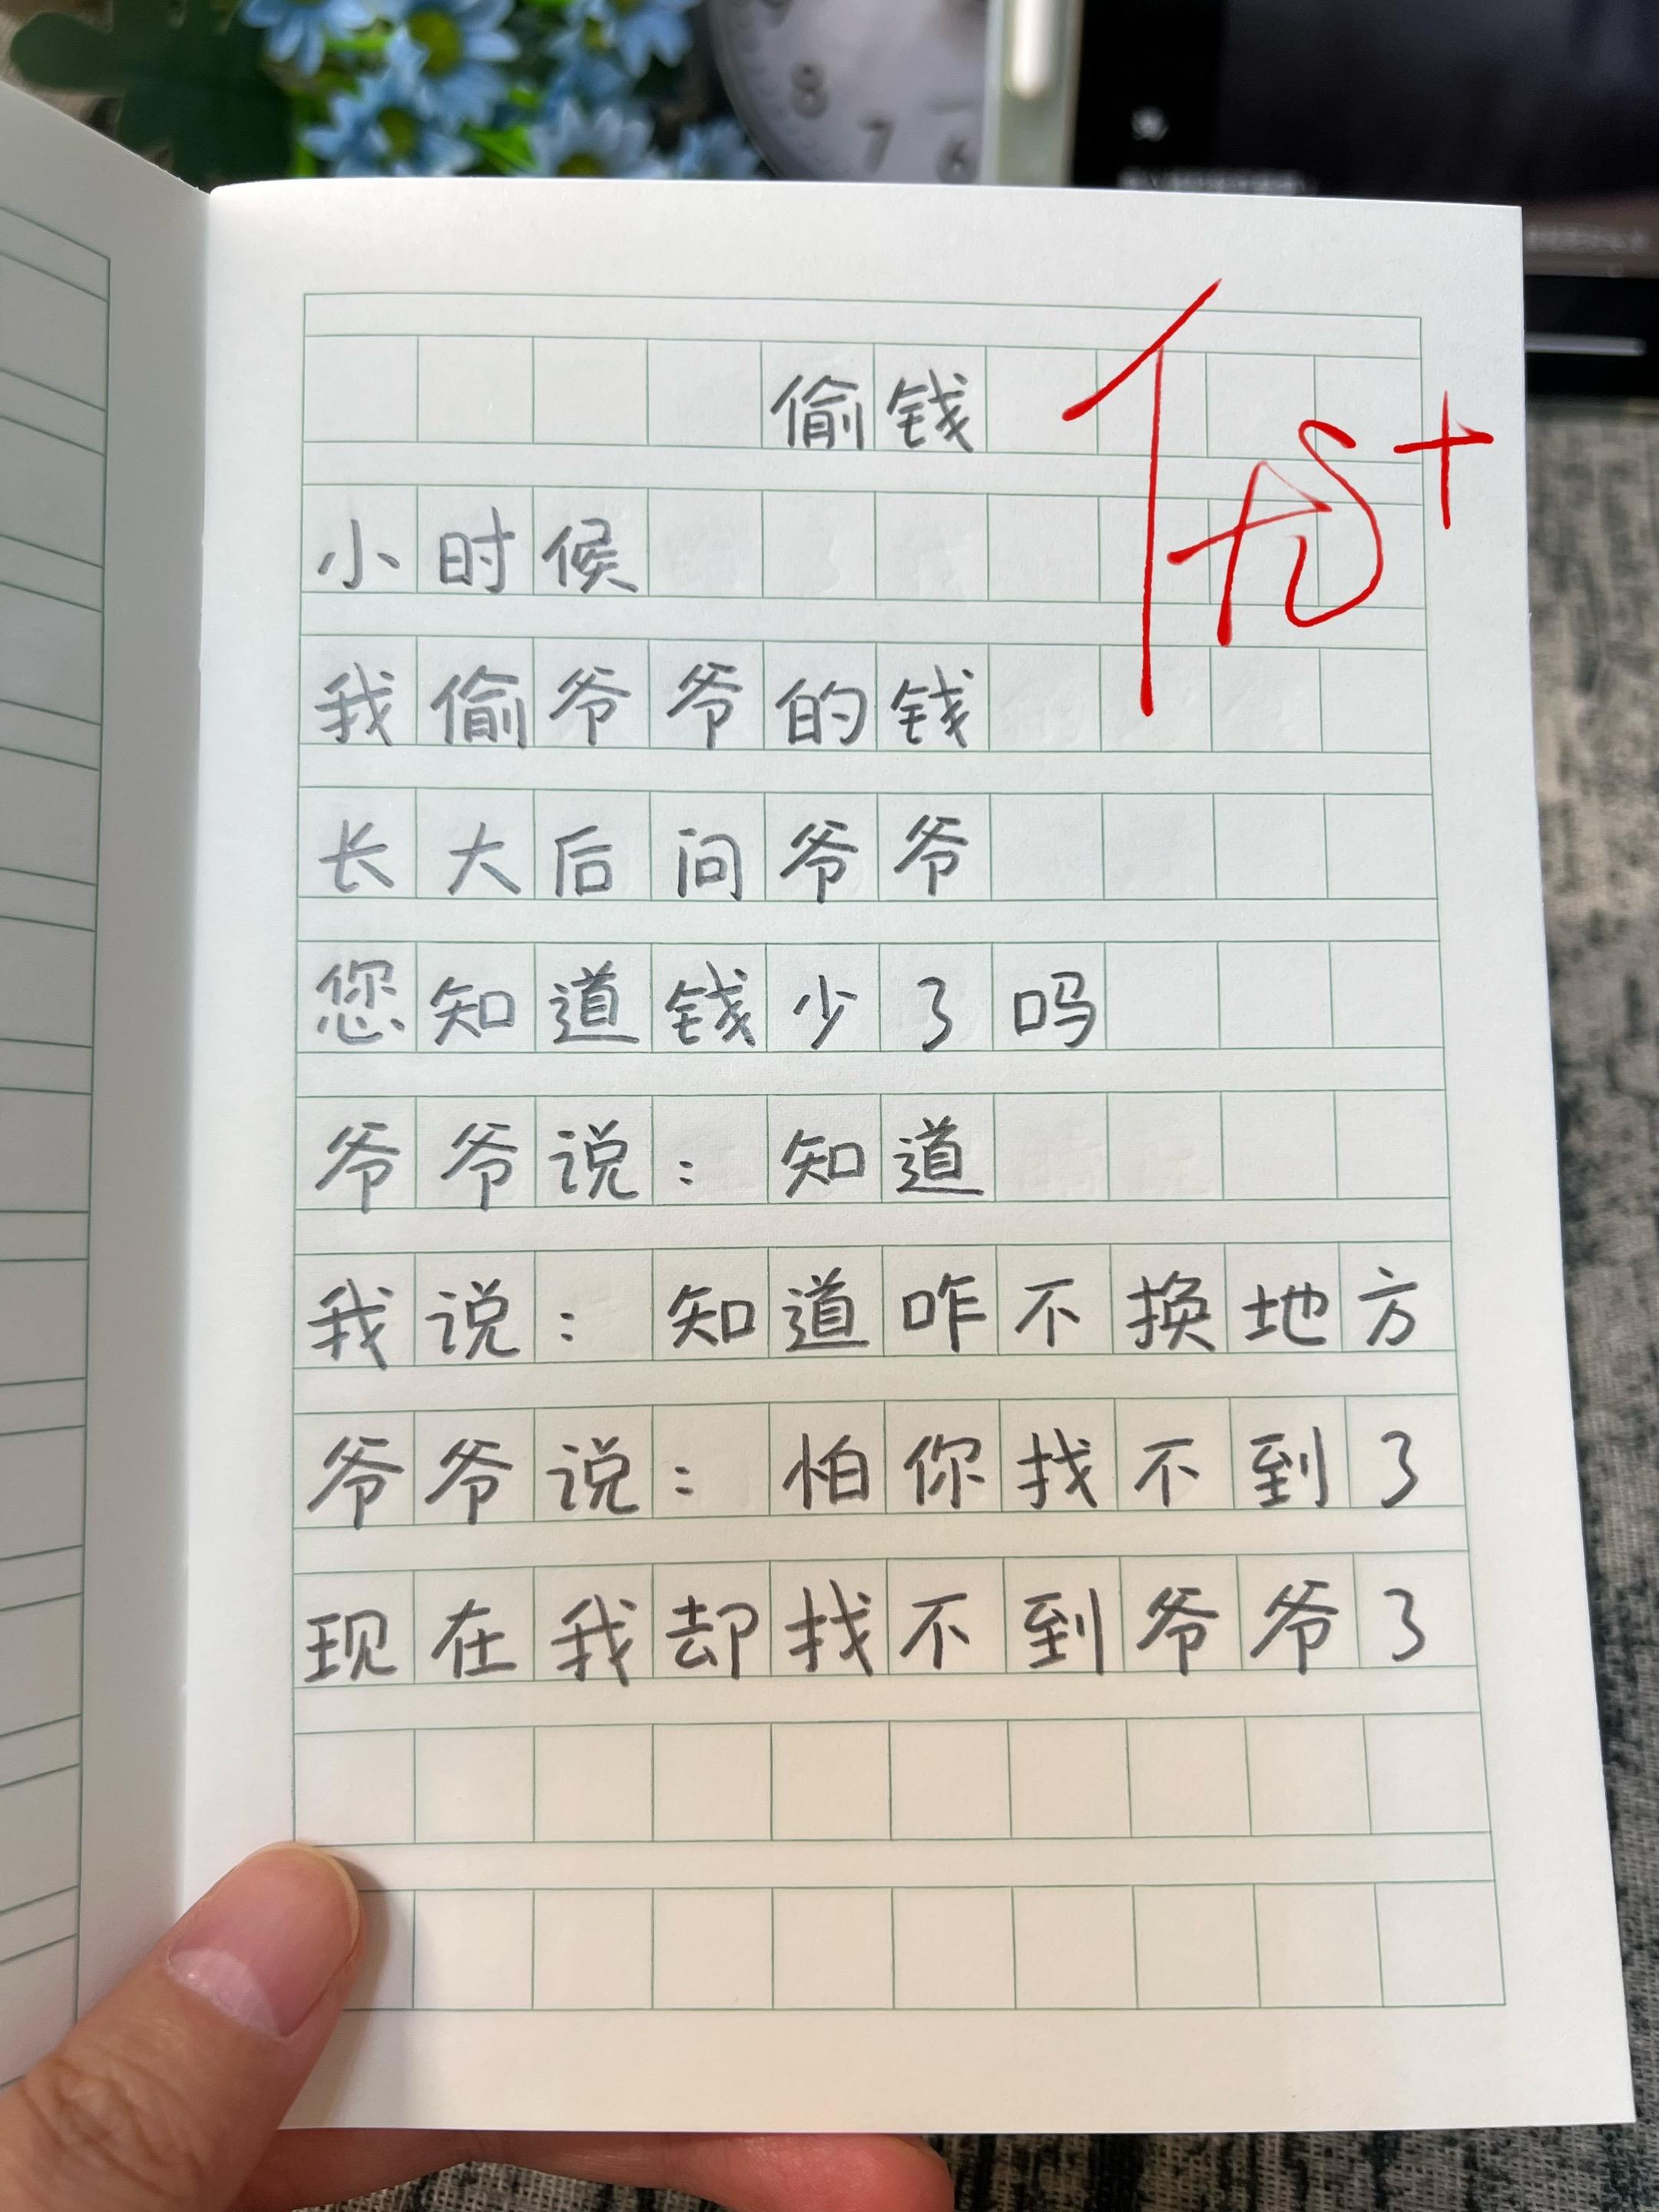 偷钱
小时候
我偷爷爷的钱
长大后问爷爷
您知道钱少了吗
爷爷说：知道
我说：知道咋不换地方
爷爷说：怕你找不到了
现在我却找不到爷爷了
8
7
6